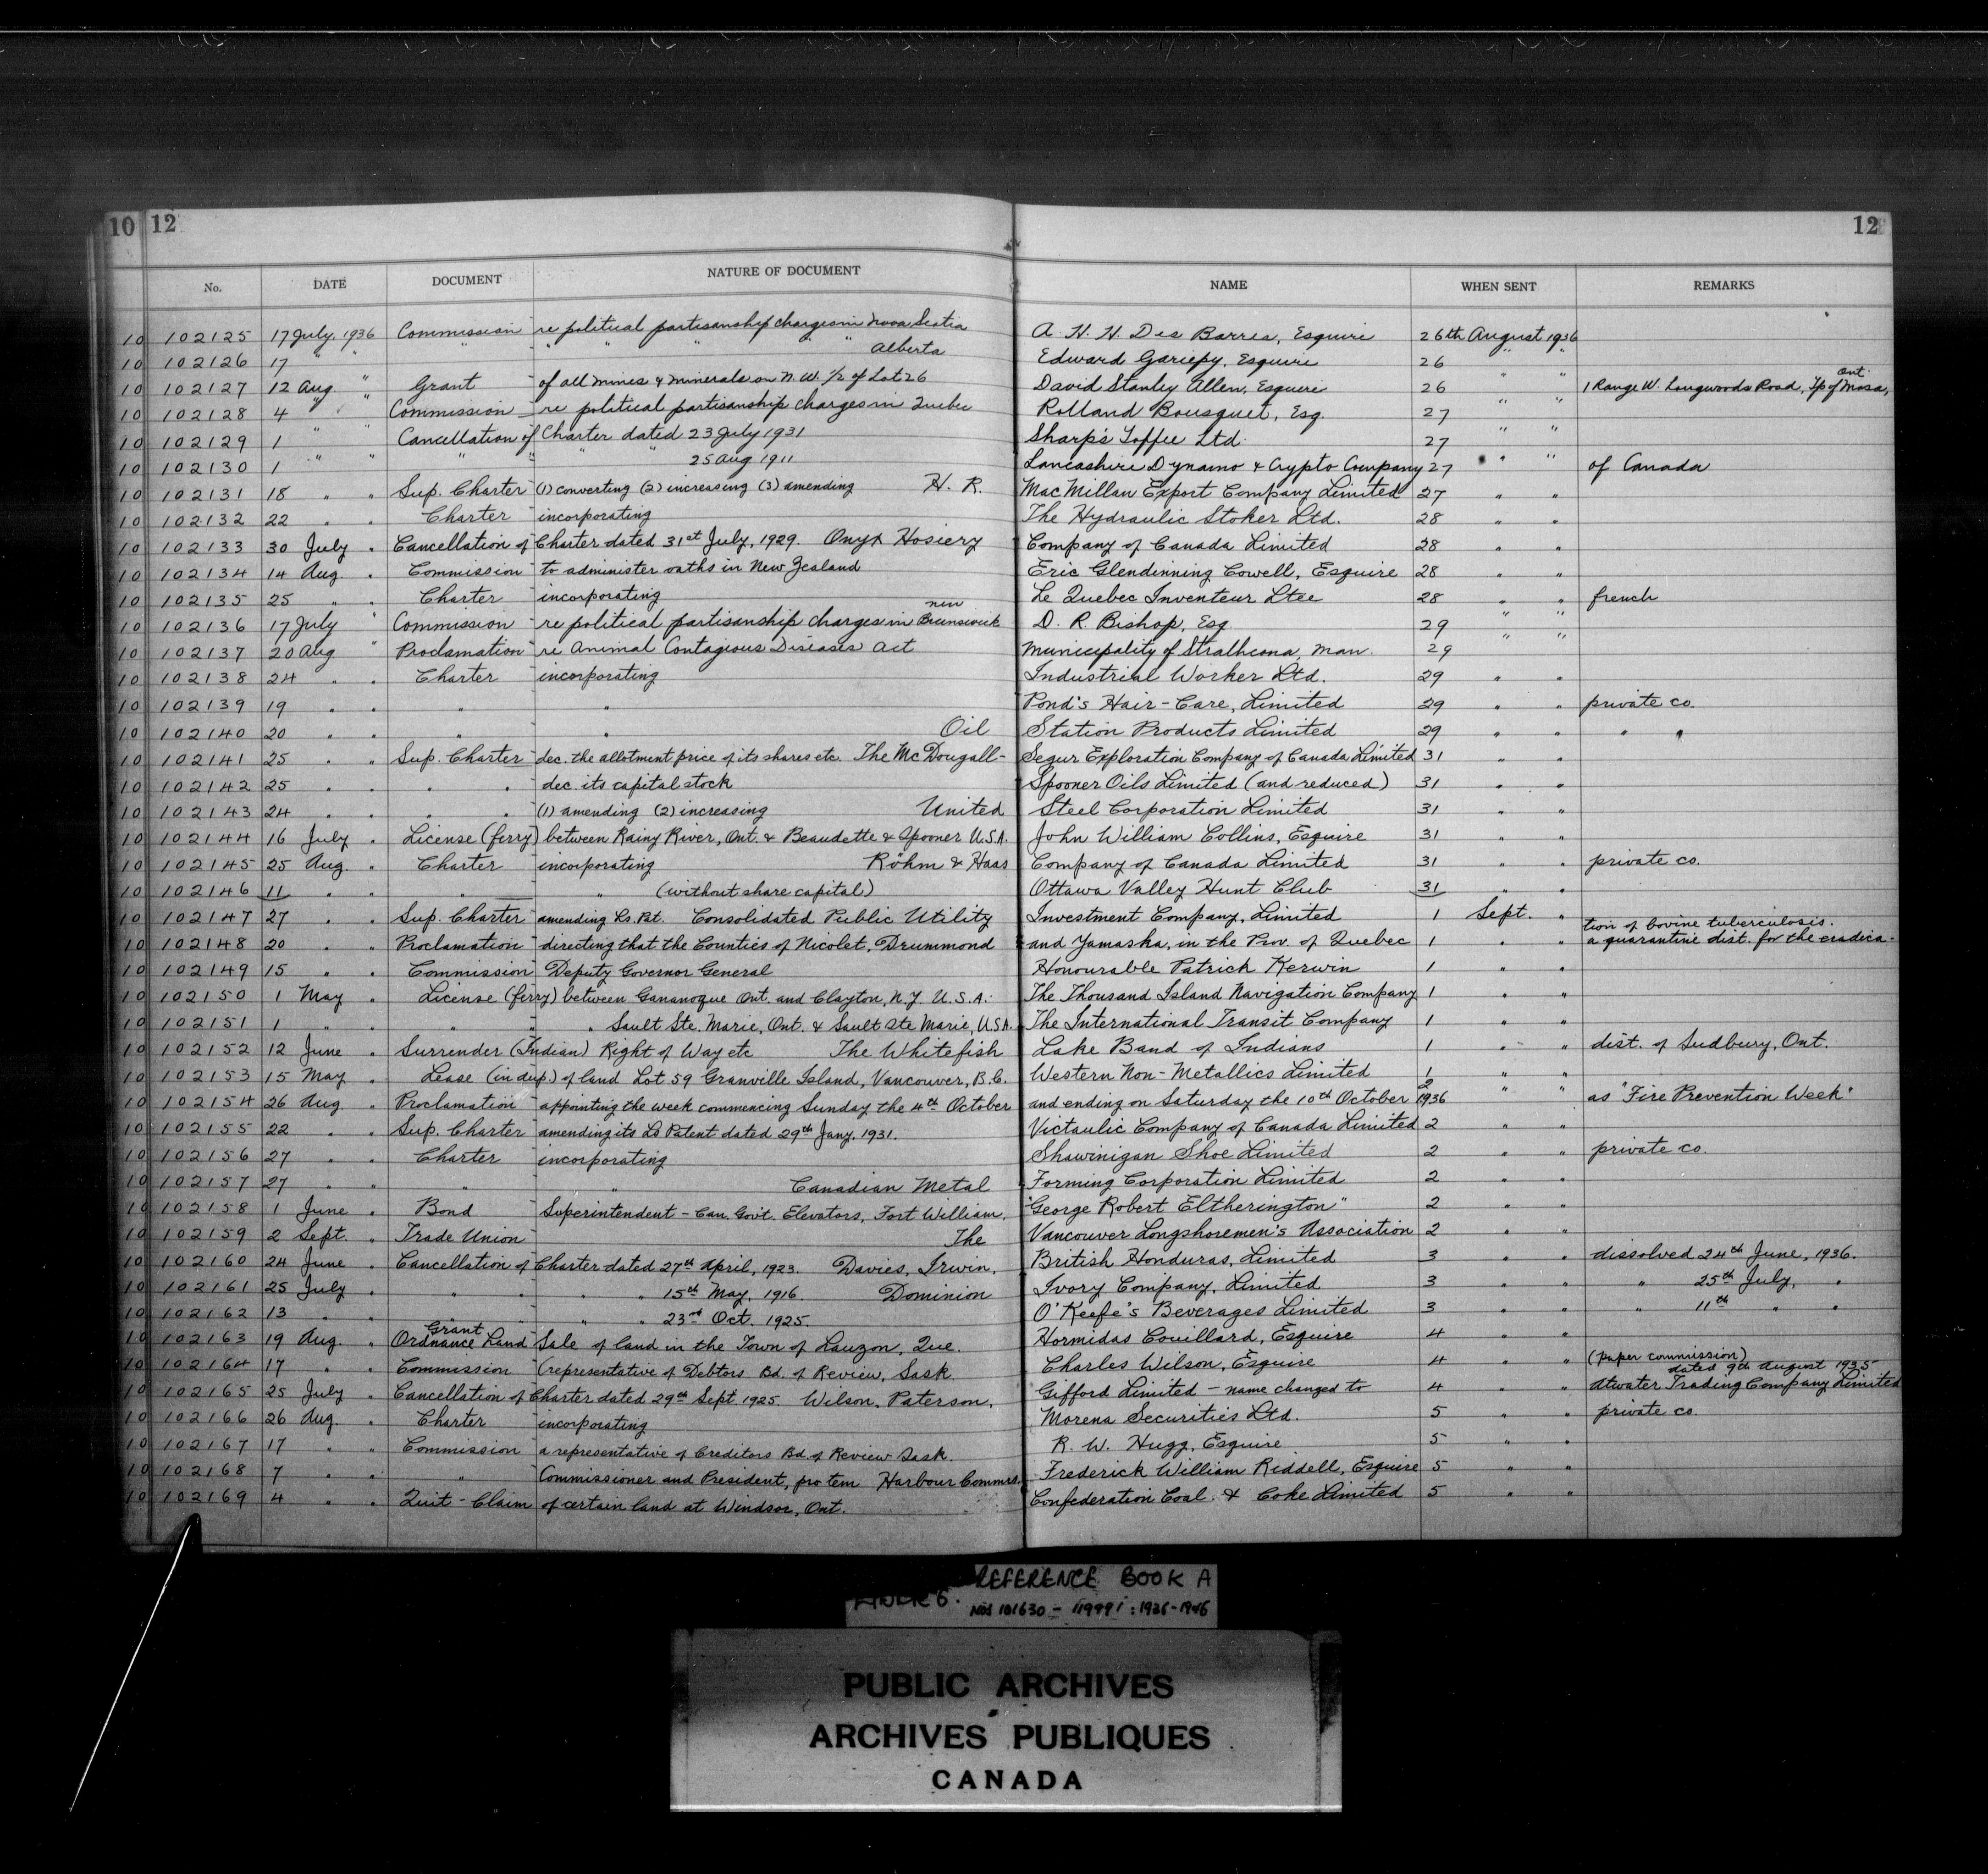 10 12 12
No. DATE DOCUMENT NATURE OF DOCUMENT NAME WHEN SENT REMARKS
10 102125 17 July 1936 Commission re political partisanship charges in Nova Scotia A. H. H. Des Barres, Esquire 26th August 1936
10 102126 17 " " " " " " " Alberta Edward Gariepy, Esquire 26 " "
10 102127 12 Aug. " Grant of all mines & minerals on N.W. 1/2 of Lot 26 David Stanley Allen, Esquire 26 " " 1 Range W. Longwoods Road, Tp of Mosa, Ont
10 102128 4 " " Commission re political partisanship charges in Quebec Rolland Bousquet, Esq. 27 " "
10 102129 1 " " Cancellation of Charter dated 23 July 1931 Sharp's Toffee Ltd. 27 " "
10 102130 1 " " " " " " 25 Aug 1911 Lancashire Dynamo & Crypto Company 27 " " of Canada
10 102131 18 " " Sup. Charter (1) converting (2) increasing (3) amending H. R. MacMillan Export Company Limited 27 " "
10 102132 22 " " Charter incorporating The Hydraulic Stoker Ltd. 28 " "
10 102133 30 July " Cancellation of Charter dated 31st July, 1929. Onyx Hosiery Company of Canada Limited 28 " "
10 102134 14 Aug. " Commission to administer oaths in New Zealand Eric Glendinning Cowell, Esquire 28 " "
10 102135 25 " " Charter incorporating Le Quebec Inventeur Ltee 28 " " french
10 102136 17 July " Commission re political partisanship charges in New Brunswick D. R. Bishop, Esq. 29 " "
10 102137 20 Aug " Proclamation re Animal Contagious Diseases Act Municipality of Strathcona, Man. 29 " "
10 102138 24 " " Charter incorporating Industrial Worker Ltd. 29 " "
10 102139 19 " " " " Pond's Hair-Care, Limited 29 " " private co.
10 102140 20 " " " " Oil Station Products Limited 29 " " " "
10 102141 25 " " Sup. Charter dec. the allotment price of its shares etc. The McDougall- Segur Exploration Company of Canada Limited 31 " "
10 102142 25 " " " " dec. its capital stock Spooner Oils Limited (and reduced) 31 " "
10 102143 24 " " " " (1) amending (2) increasing United Steel Corporation Limited 31 " "
10 102144 16 July " License (ferry) between Rainy River, Ont. & Beaudette & Spooner U.S.A. John William Collins, Esquire 31 " "
10 102145 25 Aug. " Charter incorporating Röhm & Haas Company of Canada Limited 31 " " private co.
10 102146 11 " " " " (without share capital) Ottawa Valley Hunt Club 31 " "
10 102147 27 " " Sup. Charter amending Ls. Pat. Consolidated Public Utility Investment Company, Limited 1 Sept. " tion of bovine tuberculosis.
10 102148 20 " " Proclamation directing that the Counties of Nicolet, Drummond and Yamaska, in the Prov. of Quebec 1 " " a quarantine dist. for the eradica-
10 102149 15 " " Commission Deputy Governor General Honourable Patrick Kerwin 1 " "
10 102150 1 May " License (ferry) between Gananoque Ont. and Clayton, N.Y. U.S.A. The Thousand Island Navigation Company 1 " "
10 102151 1 " " " " " Sault Ste. Marie, Ont. & Sault Ste Marie, U.S.A. The International Transit Company 1 " "
10 102152 12 June " Surrender (Indian) Right of Way etc The Whitefish Lake Band of Indians 1 " " dist. of Sudbury, Ont.
10 102153 15 May " Lease (in dup.) of land Lot 59 Granville Island, Vancouver, B.C. Western Non-Metallics Limited 1 " "
10 102154 26 Aug. " Proclamation appointing the week commencing Sunday the 4th October and ending on Saturday the 10th October 1936 2 " " as "Fire Prevention Week"
10 102155 22 " " Sup. Charter amending its Ls Patent dated 29th Jany. 1931. Victaulic Company of Canada Limited 2 " "
10 102156 27 " " Charter incorporating Shawinigan Shoe Limited 2 " " private co.
10 102157 27 " " " " Canadian Metal Forming Corporation Limited 2 " "
10 102158 1 June " Bond Superintendent - Can. Gov't. Elevators, Fort William. "George Robert Eltherington" 2 " "
10 102159 2 Sept. " Trade Union The Vancouver Longshoremen's Association 2 " "
10 102160 24 June " Cancellation of Charter dated 27th April, 1923. Davies, Irwin, British Honduras, Limited 3 " " dissolved 24th June, 1936.
10 102161 25 July " " " " " 15th May, 1916. Dominion Ivory Company, Limited 3 " " " 25th July, "
10 102162 13 " " " " " " 23rd Oct. 1925. O'Keefe's Beverages Limited 3 " " " 11th " "
10 102163 19 Aug. " Ordnance Land Grant Sale of land in the Town of Lauzon, Que. Hormidas Couillard, Esquire 4 " "
10 102164 17 " " Commission (representative of Debtors Bd. of Review, Sask. Charles Wilson, Esquire 4 " " (paper commission) dated 9th August 1935
10 102165 25 July " Cancellation of Charter dated 29th Sept. 1925. Wilson, Paterson, Gifford Limited - name changed to 4 " " Atwater Trading Company Limited
10 102166 26 Aug. " Charter incorporating Morena Securities Ltd. 5 " " private co.
10 102167 17 " " Commission a representative of Creditors Bd. of Review Sask. R. W. Hugg, Esquire 5 " "
10 102168 7 " " " Commissioner and President, pro tem Harbour Commrs. Frederick William Riddell, Esquire 5 " "
10 102169 4 " " Quit-Claim of certain land at Windsor, Ont. Confederation Coal & Coke Limited 5 " "
REFERENCE BOOK A
Nos 101630 - 119991 : 1936-1946
PUBLIC ARCHIVES
ARCHIVES PUBLIQUES
CANADA